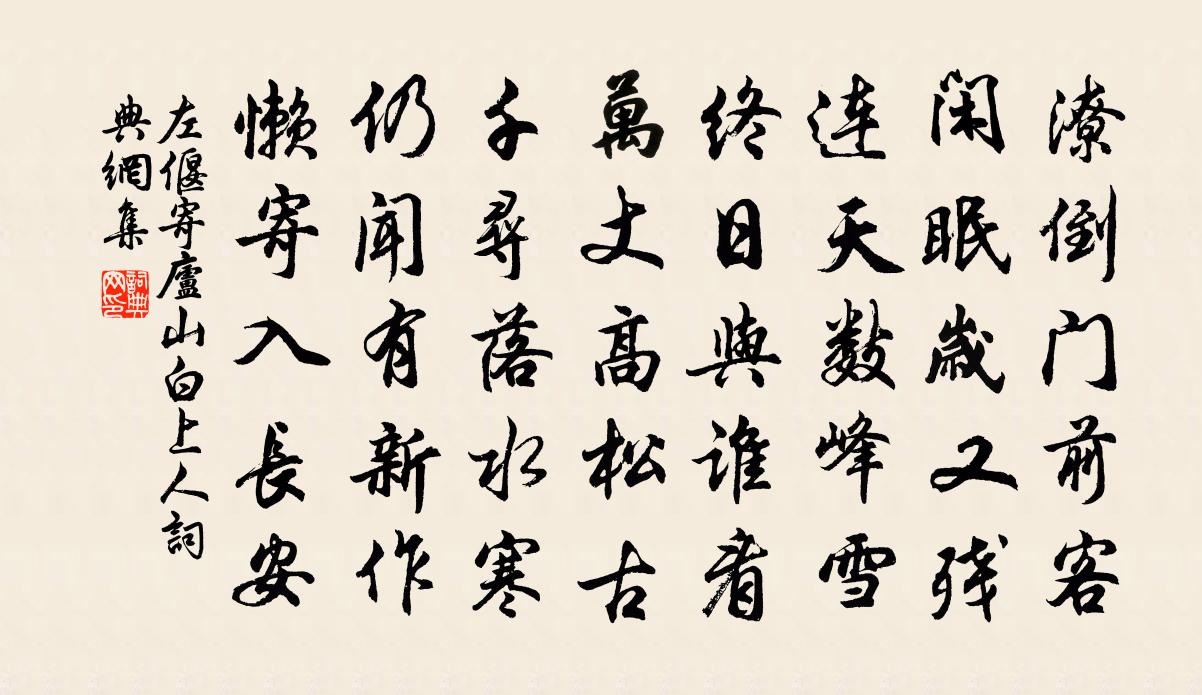 潦倒门前客
闲眠歲又残
连天數峰雪
终日與谁看
萬丈高松古
千尋落水寒
仍闻有新作
懒寄入長安
左偃寄廬山白上人詞
典網集
詞典网印